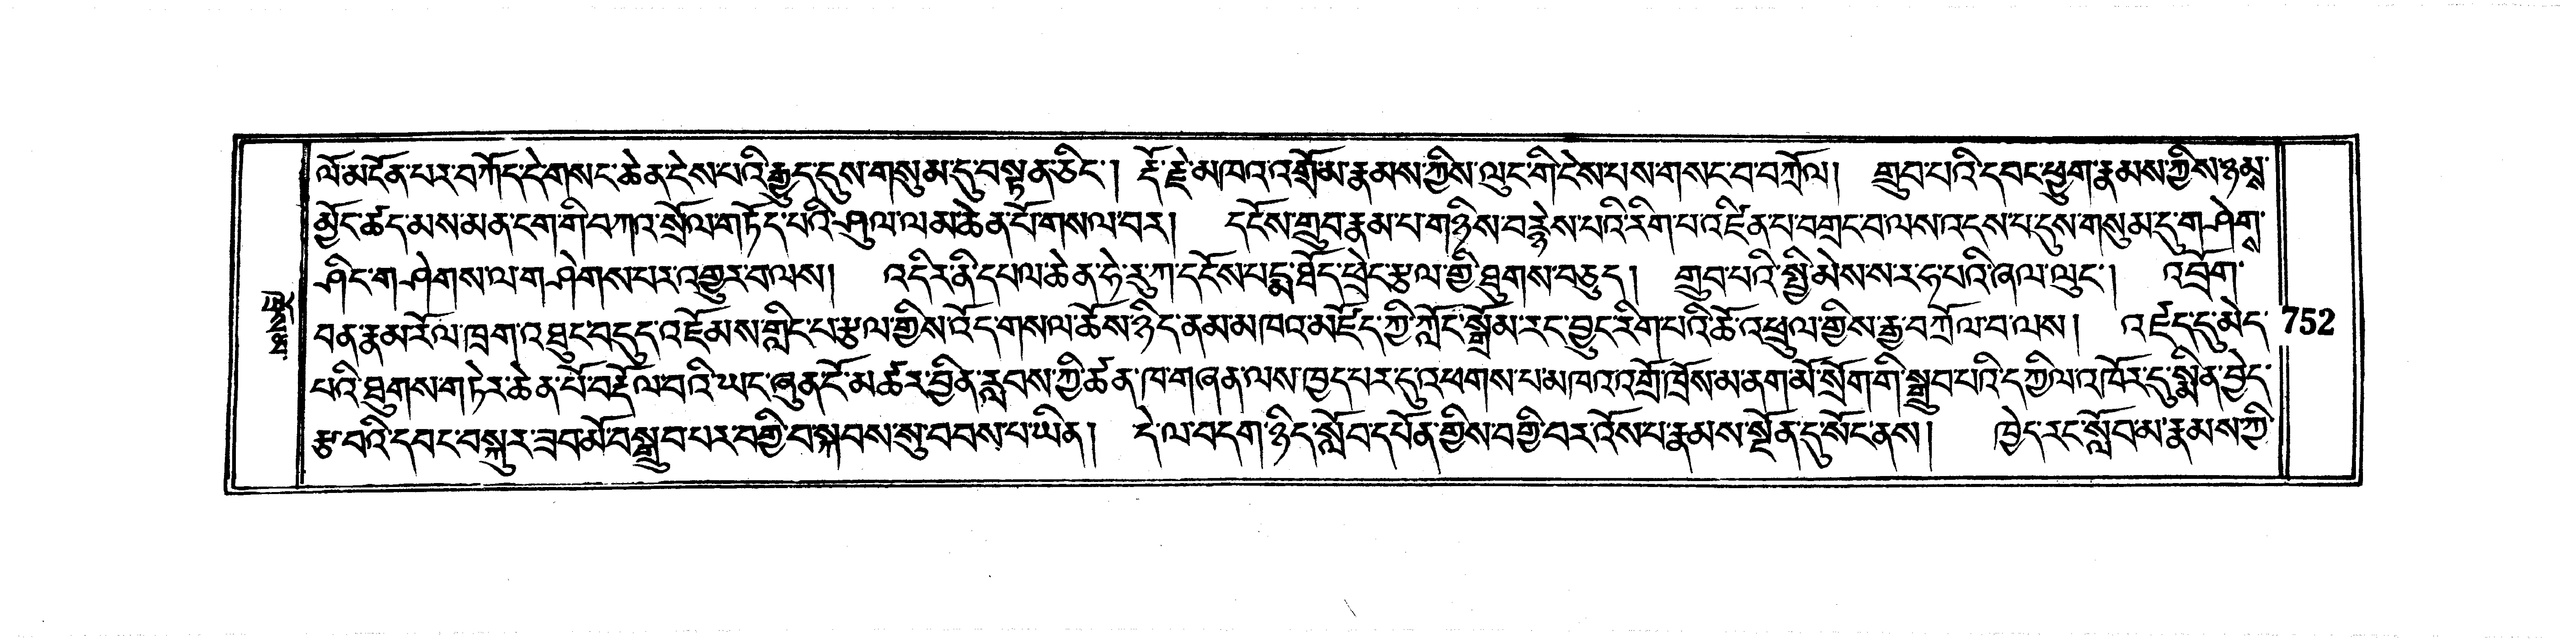 ལོ་མངོན་པར་བཀོད་དེ་གསང་ཆེན་ངེས་པའི་རྒྱུད་དུས་གསུམ་དུ་བསྟན་ཅིང་། རྡོ་རྗེ་མཁའ་འགྲོ་མ་རྣམས་ཀྱིས་ལུང་གི་ངེས་པས་གསང་བ་བཀྲོལ། གྲུབ་པའི་དབང་ཕྱུག་རྣམས་ཀྱིས་ཉམས་
མྱོང་ཚད་མས་མན་ངག་གི་བཀའ་སྲོལ་གཏོད་པའི་ཤུལ་ལམ་ཆེན་པོ་གསལ་བར། དངོས་གྲུབ་རྣམ་པ་གཉིས་བརྙེས་པའི་རིག་པ་འཛིན་པ་བགྲང་བ་ལས་འདས་པ་དུས་གསུམ་དུ་གཤེགས་
ཤིང་གཤེགས་ལ་གཤེགས་པར་འགྱུར་བ་ལས། འདིར་ནི་དཔལ་ཆེན་ཧེ་རུ་ཀ་དངོས་པདྨ་ཐོད་ཕྲེང་རྩལ་གྱི་ཐུགས་བཅུད། གྲུབ་པའི་སྤྱི་མེས་ས་ར་ཧ་པའི་ཞལ་ལུང་། འབྲོག་
བན་རྣམ་རོལ་ཁྲག་འཐུང་བདུད་འཇོམས་གླིང་པ་རྩལ་གྱིས་འོད་གསལ་ཆོས་ཉིད་ནམ་མཁའ་མཛོད་ཀྱི་ཀློང་སྒྲོམ་རང་བྱུང་རིག་པའི་ཆོ་འཕྲུལ་གྱིས་རྒྱ་བཀྲོལ་བ་ལས། འཛད་དུ་མེད་ 752
པའི་ཐུགས་གཏེར་ཆེན་པོ་བརྡོལ་བའི་ཡང་ཞུན་ངོ་མཚར་བྱིན་རླབས་ཀྱི་ཚན་ཁ་གཞན་ལས་ཁྱད་པར་དུ་འཕགས་པ་མཁའ་འགྲོ་ཁྲོས་མ་ནག་མོ་སྲོག་གི་སྒྲུབ་པའི་དཀྱིལ་འཁོར་དུ་སྨིན་བྱེད་
རྩ་བའི་དབང་བསྐུར་ཟབ་མོ་བསྒྲུབ་པར་བགྱི་བ་སྐབས་སུ་བབས་པ་ཡིན། དེ་ལ་བདག་ཉིད་སློབ་དཔོན་གྱིས་བགྱི་བར་འོས་པ་རྣམས་སྔོན་དུ་སོང་ནས། ཁྱེད་རང་སློབ་མ་རྣམས་ཀྱི་